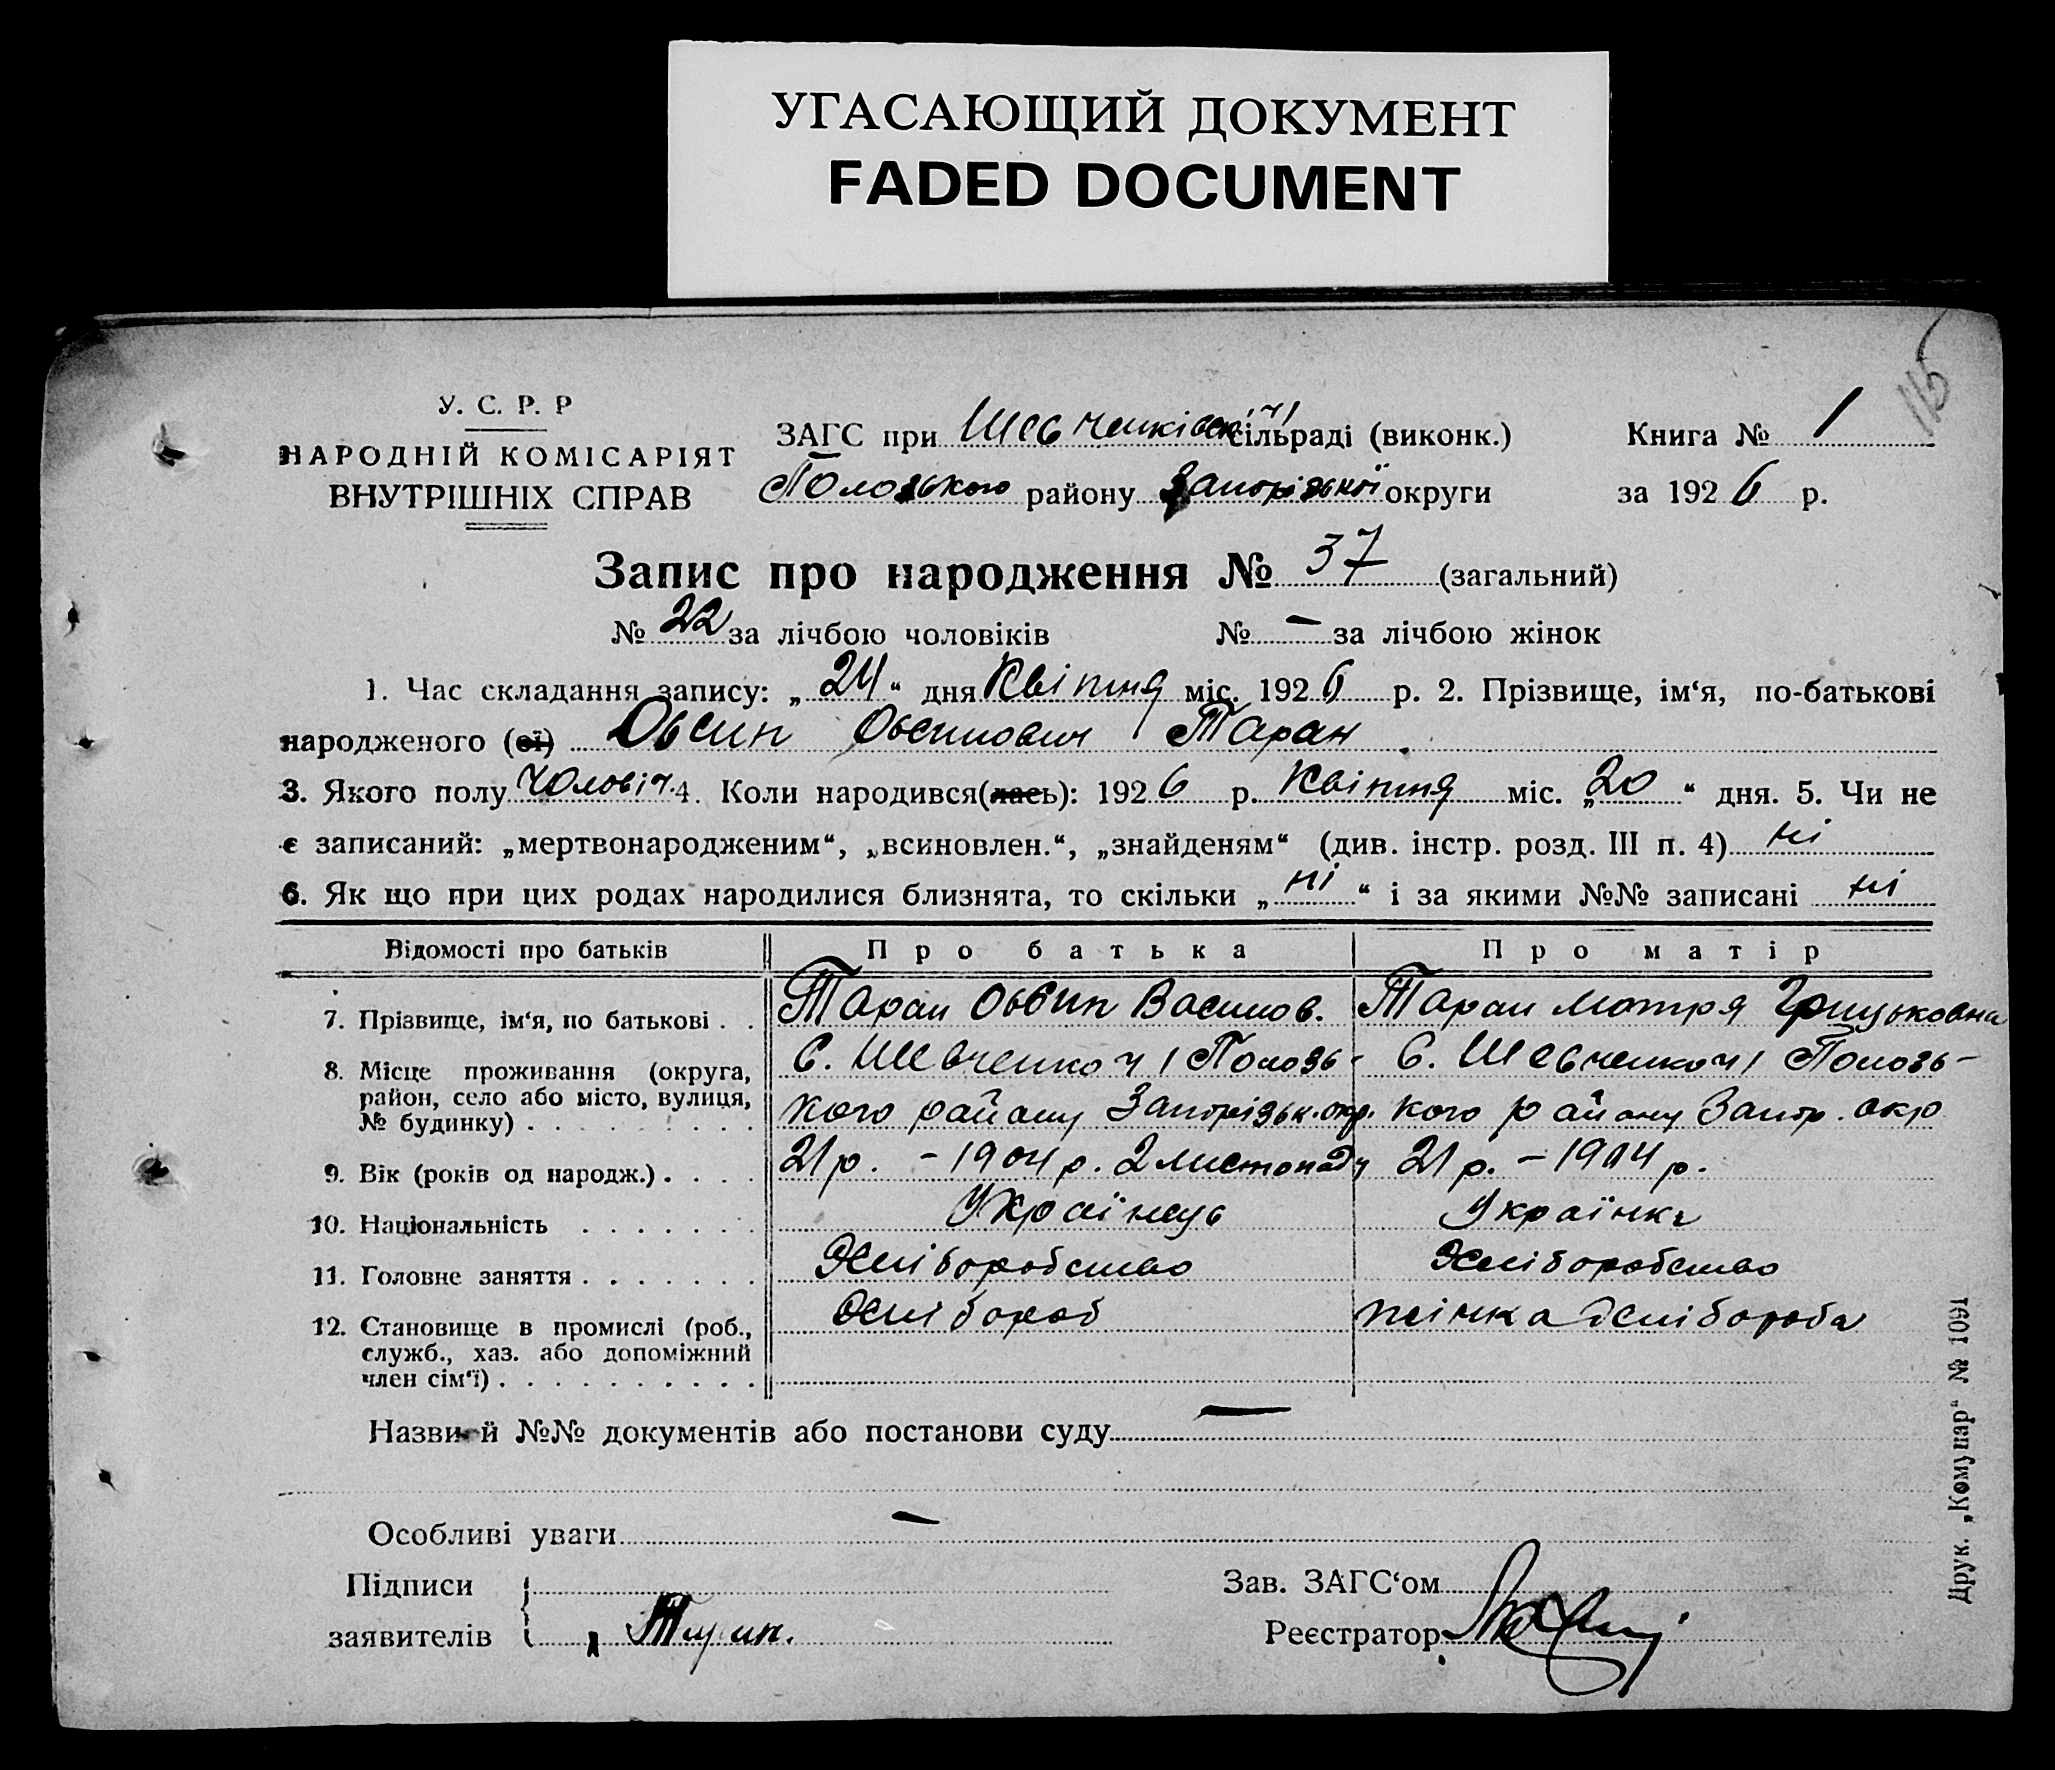 УГАСАЮЩИЙ ДОКУМЕНТ
FADED DOCUMENT
115
У. С. Р. Р
НАРОДНІЙ КОМІСАРІЯТ
ВНУТРІШНІХ СПРАВ
ЗАГС при Шевченківськ. сільраді (виконк.)
Пологського району Запорізької округи
Книга № 1
за 1926 р.
Запис про народження № 37 (загальний)
№ 22 за лічбою чоловіків № — за лічбою жінок
1. Час складання запису: „24“ дня Квітня міс. 1926 р. 2. Прізвище, ім‘я, по-батькові
народженого (ої) Овсип Овсипович Таран.
3. Якого полу Чоловіч. 4. Коли народився(лась): 1926 р. Квітня міс. „20“ дня. 5. Чи не
є записаний: „мертвонародженим“, „всиновлен.“, „знайденям“ (див. інстр. розд. III п. 4) ні
6. Як що при цих родах народилися близнята, то скільки „ні“ і за якими №№ записані ні
Відомості про батьків Про батька Про матір
7. Прізвище, ім‘я, по батькові . . Таран Овсип Васильов. Таран Мотря Грицьковна
8. Місце проживання (округа,
район, село або місто, вулиця,
№ будинку) . . . . . . . . .
С. Шевченко ч 1 Пологь-
кого району Запорізьк. окр.
С. Шевченко ч 1 Пологь-
кого району Запор. окр
9. Вік (років од народж.) . . . . 21 р. – 1904 р. 2 листопаду 21 р. – 1904 р.
10. Національність . . . . . . . Українець Українка
11. Головне заняття . . . . . . . Хліборобство Хліборобство
12. Становище в промислі (роб.,
служб., хаз. або допоміжний
член сім‘ї) . . . . . . . . . .
Хлібороб жінка хлібороба
Назви й №№ документів або постанови суду —
Особливі уваги —
Підписи
заявителів { Таран.
Зав. ЗАГС‘ом
Реєстратор
Друк. „Комунар“ № 1091